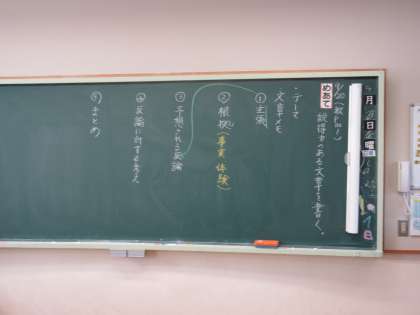 月 日 曜
めあて 説得力のある文章を書く。
・テーマ
文章メモ
①主張
②根拠(事実・体験)
③予想される反論
④反論に対する考え
⑤まとめ